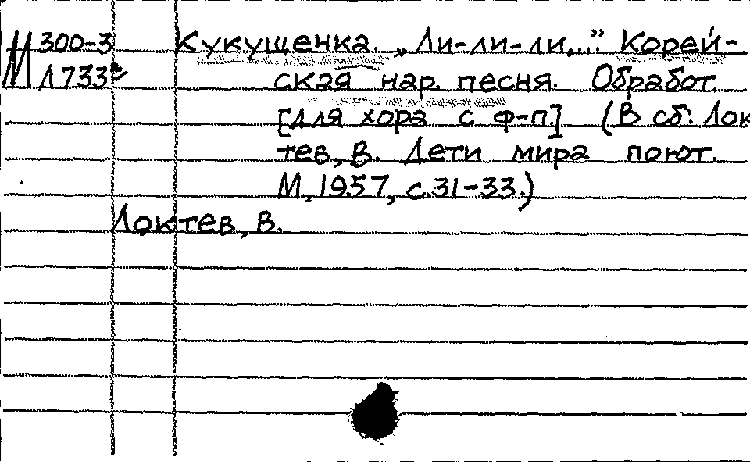 М 300-3 Кукушенка. „Ли-ли-ли,..." Корей-
Л 733 ская нар. песня. Обработ.
[для хора с ф-п] (В сб: Лок
тев, В. Дети мира поют.
М, 1957, с.31-33.)
Локтев, В.